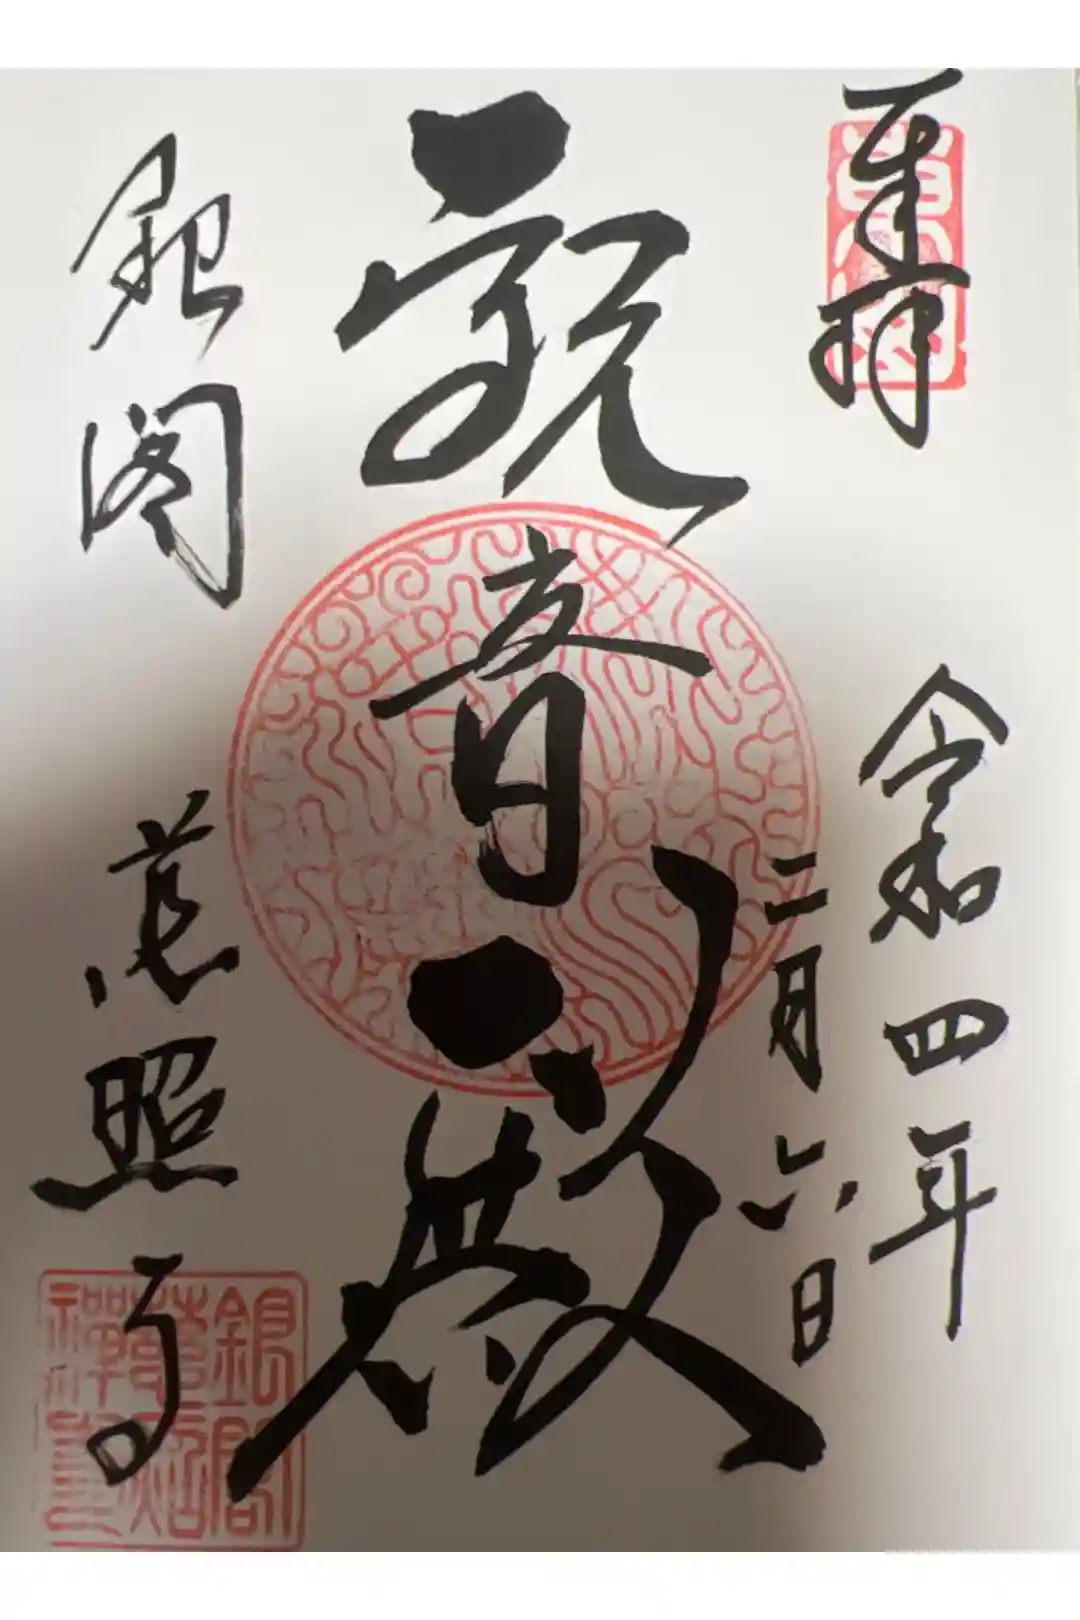 奉拝
令和四年
二月六日
観音殿
銀閣
慈照寺
銀閣
慈照
禅寺